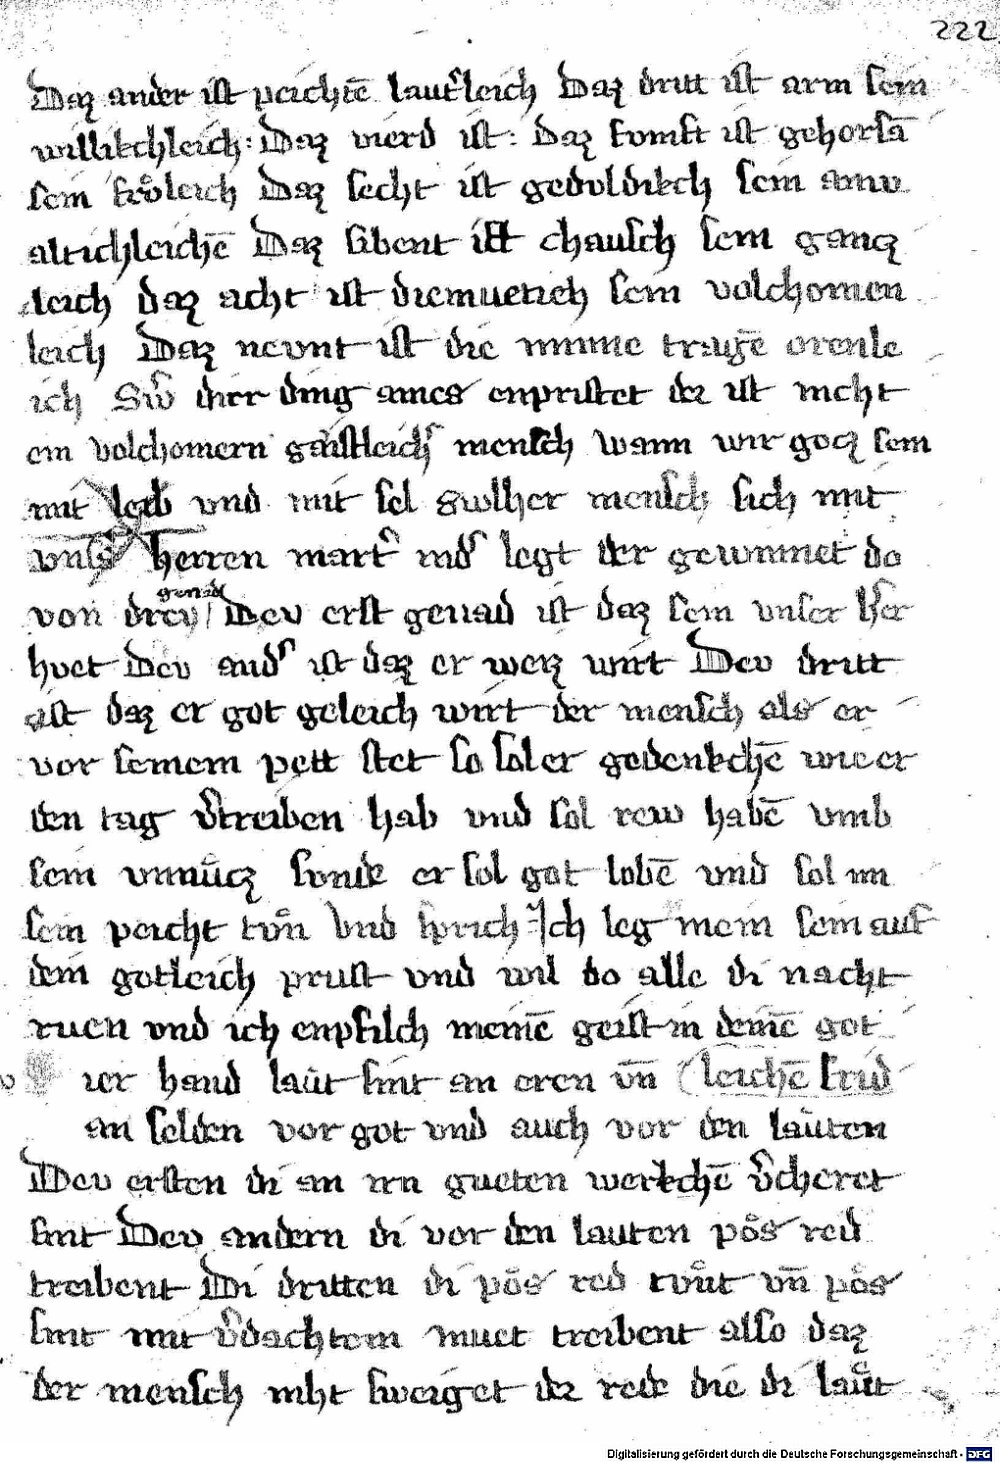 222
Daz ander ist peichtē laut'leich Daz dritt ist arm sein
willikchleich: Daz vierd ist: Daz fumft ist gehorsā
sein frͦoleich Daz secht ist geduldikch sein
Daz sibent ist chausch sein gancz
leich daz acht ist diemuetich sein volchomen
leich Daz nevnt ist die minne tragē
ich Sw dirr ding aines enpristet der ist nicht
ein volchomern gaistleich' mensch wann wir gocz sein
mit leib und mit sel Swlher mensch sich mit
vns' herren mart' nid' legt der gewinnet do
genad
von drey Dev erst genad ist daz sein vnser h'er
huet Dev and' ist daz er weiz wirt Dev dritt
ist daz er got geleich wirt der mensch als er
vor seinem pett stet so sol er gedenkchē wie er
den tag v'treiben hab und sol rew habē vmb
sein vnnücz sunde er sol got lobē vnd sol im
sein peicht tuͦn Vnd sprich Ich leg mein sein auf
dein gotleich prust vnd wil do alle di nacht
ruen vnd ich enpfilch meinē geist in deinē got
ier hand laüt sint an eren vn̄ (leichē frid
an selden vor got vnd auch vor den laüten
Dev ersten di an irn gueten werkchē v'cheret
sint Dev andern di vor den lauten poͤs red
treibent Di dritten di poͤs red tuͦnt vn̄ poͤs
sint mit v'dachtem muet treibent also daz
der mensch niht sweiget der rede die di laüt
Digitalisierung gefördert durch die Deutsche Forschungsgemeinschaft - DFG